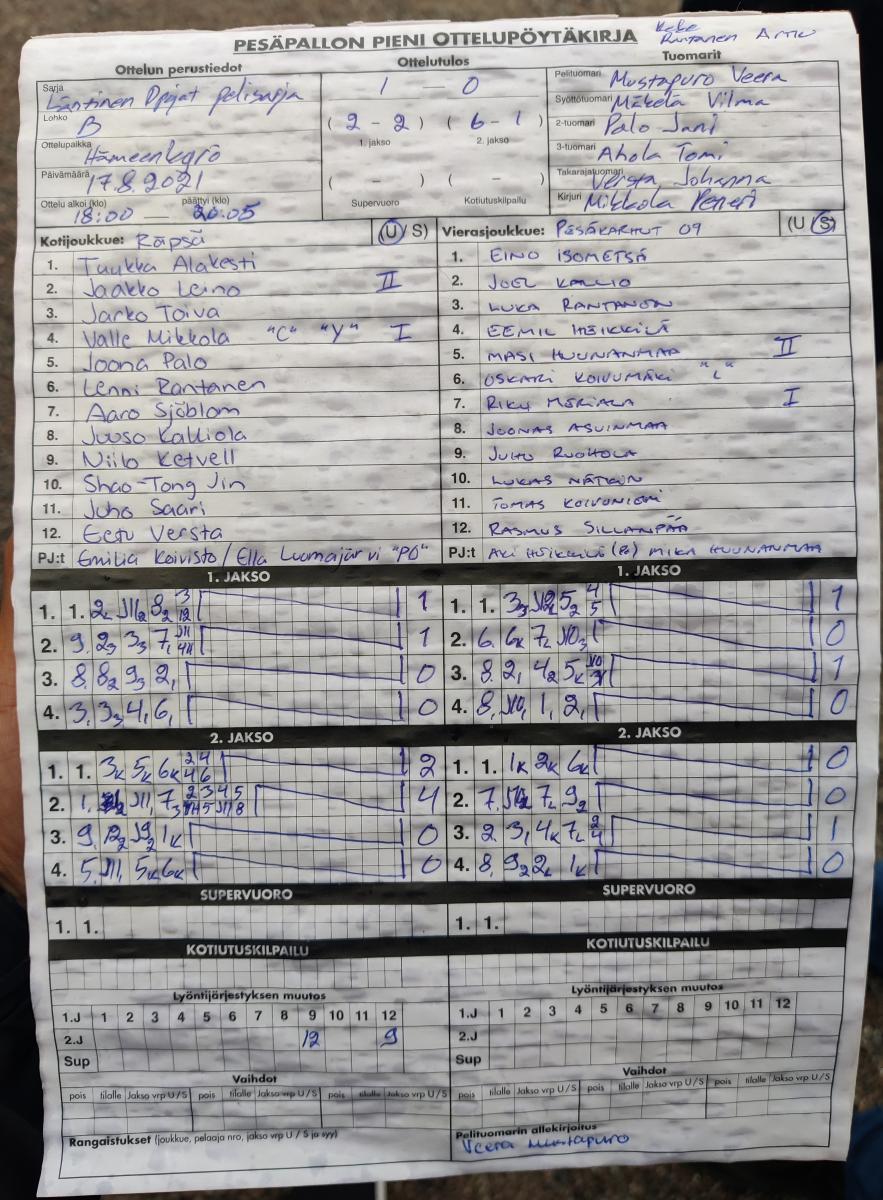 PESÄPALLON PIENI OTTELUPÖYTÄKIRJA
Rantanen
Ottelun perustiedot
Ottelutulos
Tuomarit
Sarja
Läntinen Dpojat pelisarja
Lohko
B
Ottelupaikka
Hämeenkyrö
Päivämäärä
17.8.2021
Ottelu alkoi (klo) päättyi (klo)
18:00 — 20.05
1 — 0
( 2 - 2 ) ( 6 - 1 )
1. jakso 2. jakso
( - ) ( - )
Supervuoro Kotiutuskilpailu
Pelituomari Mustapuro Veera
Syöttötuomari Mäkelä Vilma
2-tuomari Palo Jani
3-tuomari Ahola Tomi
Takarajatuomari Versta Johanna
Kirjuri Mikkola Petteri
Kotijoukkue: Räpsä (U/S)
1. Tuukka Alakesti
2. Jaakko Leino II
3. Jarko Toiva
4. Valle Mikkola "C" "Y" I
5. Joona Palo
6. Lenni Rantanen
7. Aaro Sjöblom
8. Juuso Kalliola
9. Niilo Ketvell
10. Shao-Tong Jin
11. Juho Saari
12. Eetu Versta
PJ:t Emilia Koivisto / Ella Luomajärvi "PO"
Vierasjoukkue: PESÄKARHUT 09 (U/S)
1. EINO ISOMETSÄ
2. JOEL KALLIO
3. LUKA RANTANEN
4. EEMIL HEIKKILÄ
5. MASI HUUNANMAA II
6. OSKARI KOIVUMÄKI "L"
7. RIKU I
8. JOONAS ASUINMAA
9. JUHO RUOHOLA
10. LUKAS
11. TOMAS KOIVUNIEMI
12. RASMUS SILLANPÄÄ
PJ:t AKI HEIKKILÄ (PO) MIKA HUUNANMAA
1. JAKSO
1. 1. 1
2. 9, 2 3 3 3 7, 1
3. 8, 8 2 9 3 2, 0
4. 3, 3 3 4, 6, 0
1. JAKSO
1. 1. 1
2. 6, 6K 7, 0
3. 8, 2, 4 2 5K 1
4. 8, 1, 2, 0
2. JAKSO
1. 1. 3K 5K 6K 2 4 4 6 2
2. 1, 4
3. 9, 1K 0
4. 5, 5K 6K 0
2. JAKSO
1. 1. 1K 2K 6K 0
2. 7, 0
3. 2 3, 4K 1
4. 8, 9 2 1K 0
SUPERVUORO
1. 1.
SUPERVUORO
1. 1.
KOTIUTUSKILPAILU
KOTIUTUSKILPAILU
Lyöntijärjestyksen muutos
1.J 1 2 3 4 5 6 7 8 9 10 11 12
2.J 12 9
Sup
Lyöntijärjestyksen muutos
1.J 1 2 3 4 5 6 7 8 9 10 11 12
2.J
Sup
Vaihdot
pois tilalle Jakso vrp U/S pois tilalle Jakso vrp U/S pois tilalle Jakso vrp U/S
Vaihdot
pois tilalle Jakso vrp U/S pois tilalle Jakso vrp U/S pois tilalle Jakso vrp U/S
Rangaistukset (joukkue, pelaaja nro, jakso vrp U / S ja syy)
Pelituomarin allekirjoitus
Veera Mustapuro